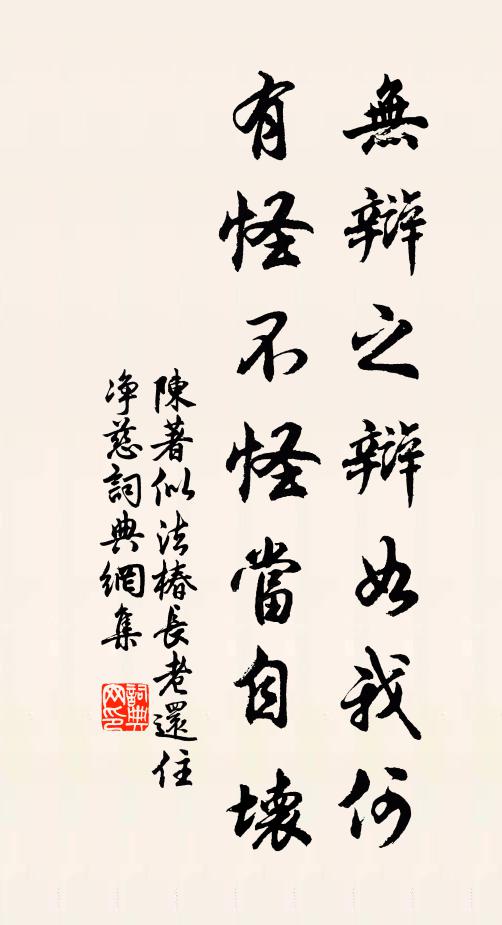 無辯之辯如我何
有怪不怪當自壞
陳著似法椿長老還住
净慈詞典網集
詞典网印